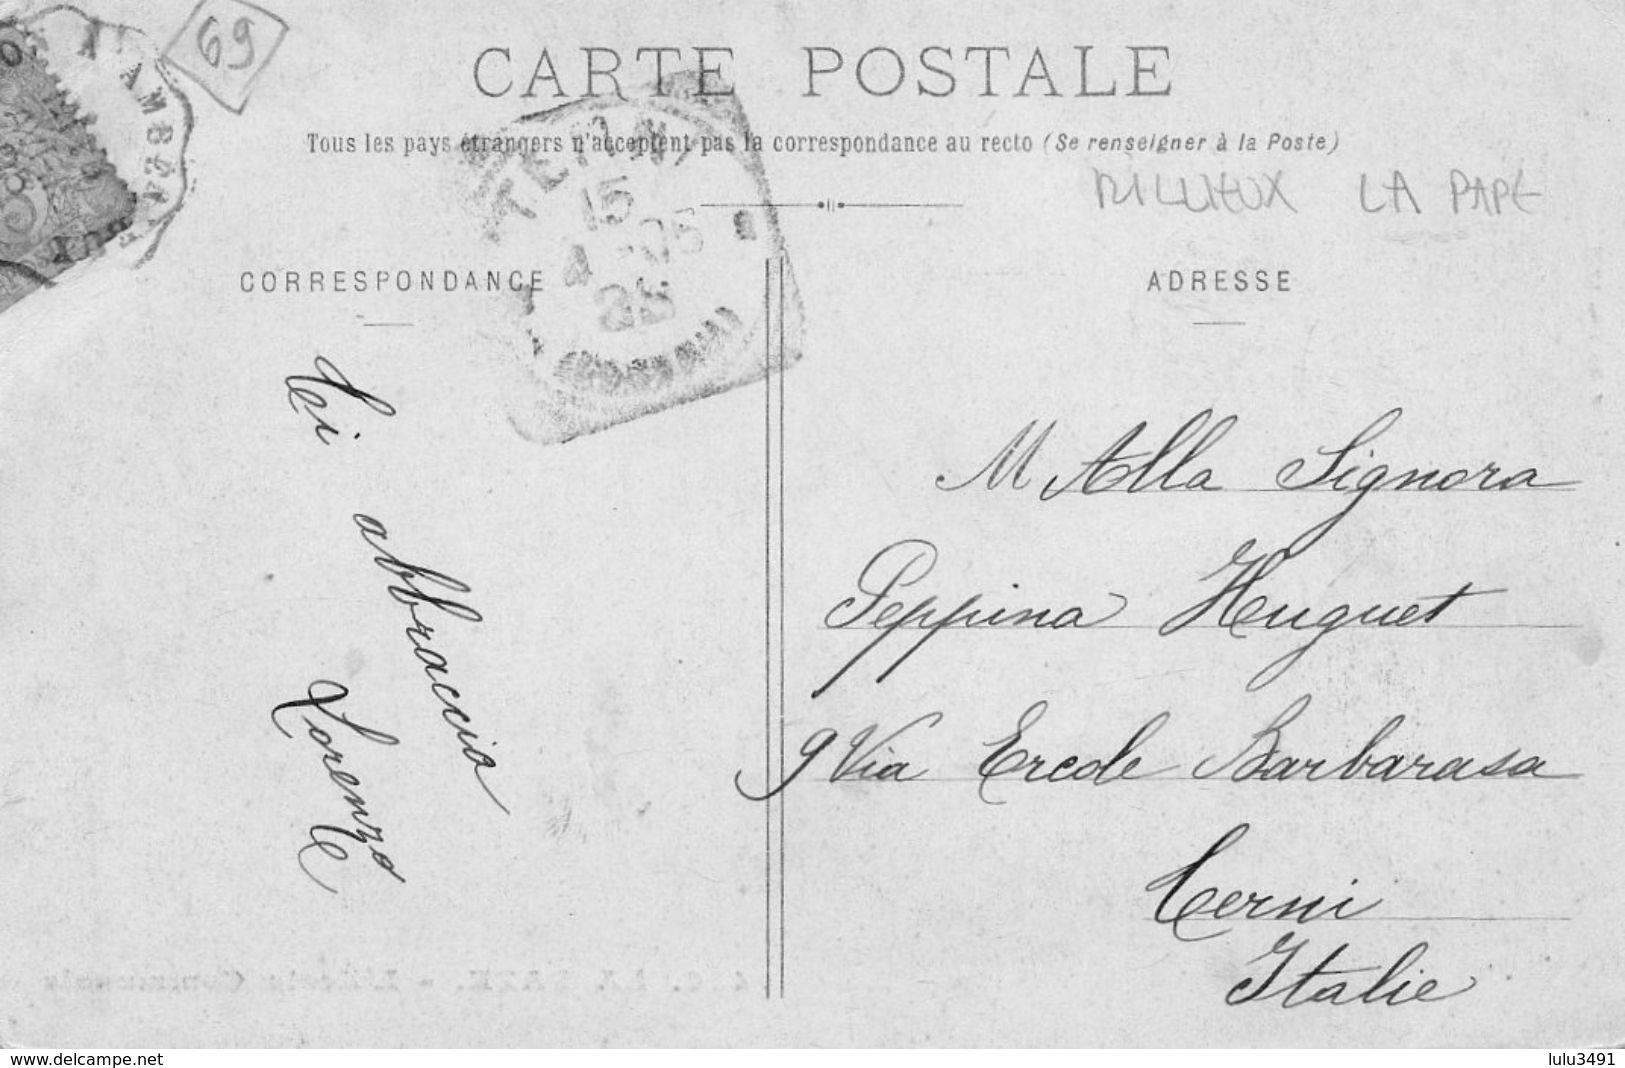 69
CARTE POSTALE
Tous les pays étrangers n'acceptent pas la correspondance au recto (Se renseigner à la Poste)
RILLIEUX LA PAPE
TERNI
15
4 - 05
CORRESPONDANCE
ADRESSE
Ti
abbraccia
Lorenzo
M Alla Signora
Peppina Huguet
9 Via Ercole Barbarasa
Terni
Italie
www.delcampe.net
lulu3491